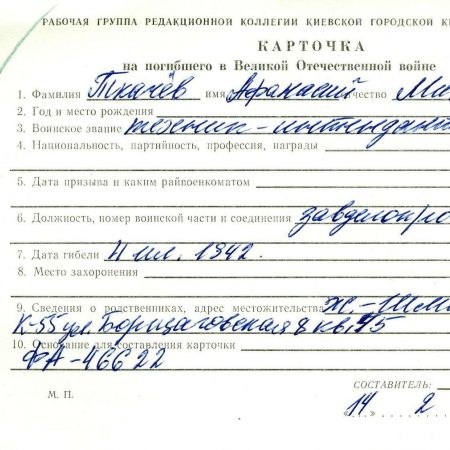 РАБОЧАЯ ГРУППА РЕДАКЦИОННОЙ КОЛЛЕГИИ КИЕВСКОЙ ГОРОДСКОЙ К
КАРТОЧКА
на погибшего в Великой Отечественной войне
1. Фамилия Ткачёв имя Афанасий отчество Ми
2. Год и место рождения
3. Воинское звание техник-интендант
4. Национальность, партийность, профессия, награды
5. Дата призыва и каким райвоенкоматом
6. Должность, номер воинской части и соединения завделопро
7. Дата гибели 4 1942.
8. Место захоронения
9. Сведения о родственниках, адрес местожительства ж.-
К-55 ул. Борщаговская 8 кв. 75
10. Основание для составления карточки
ФА-46622
СОСТАВИТЕЛЬ:
М. П.
"14" 2